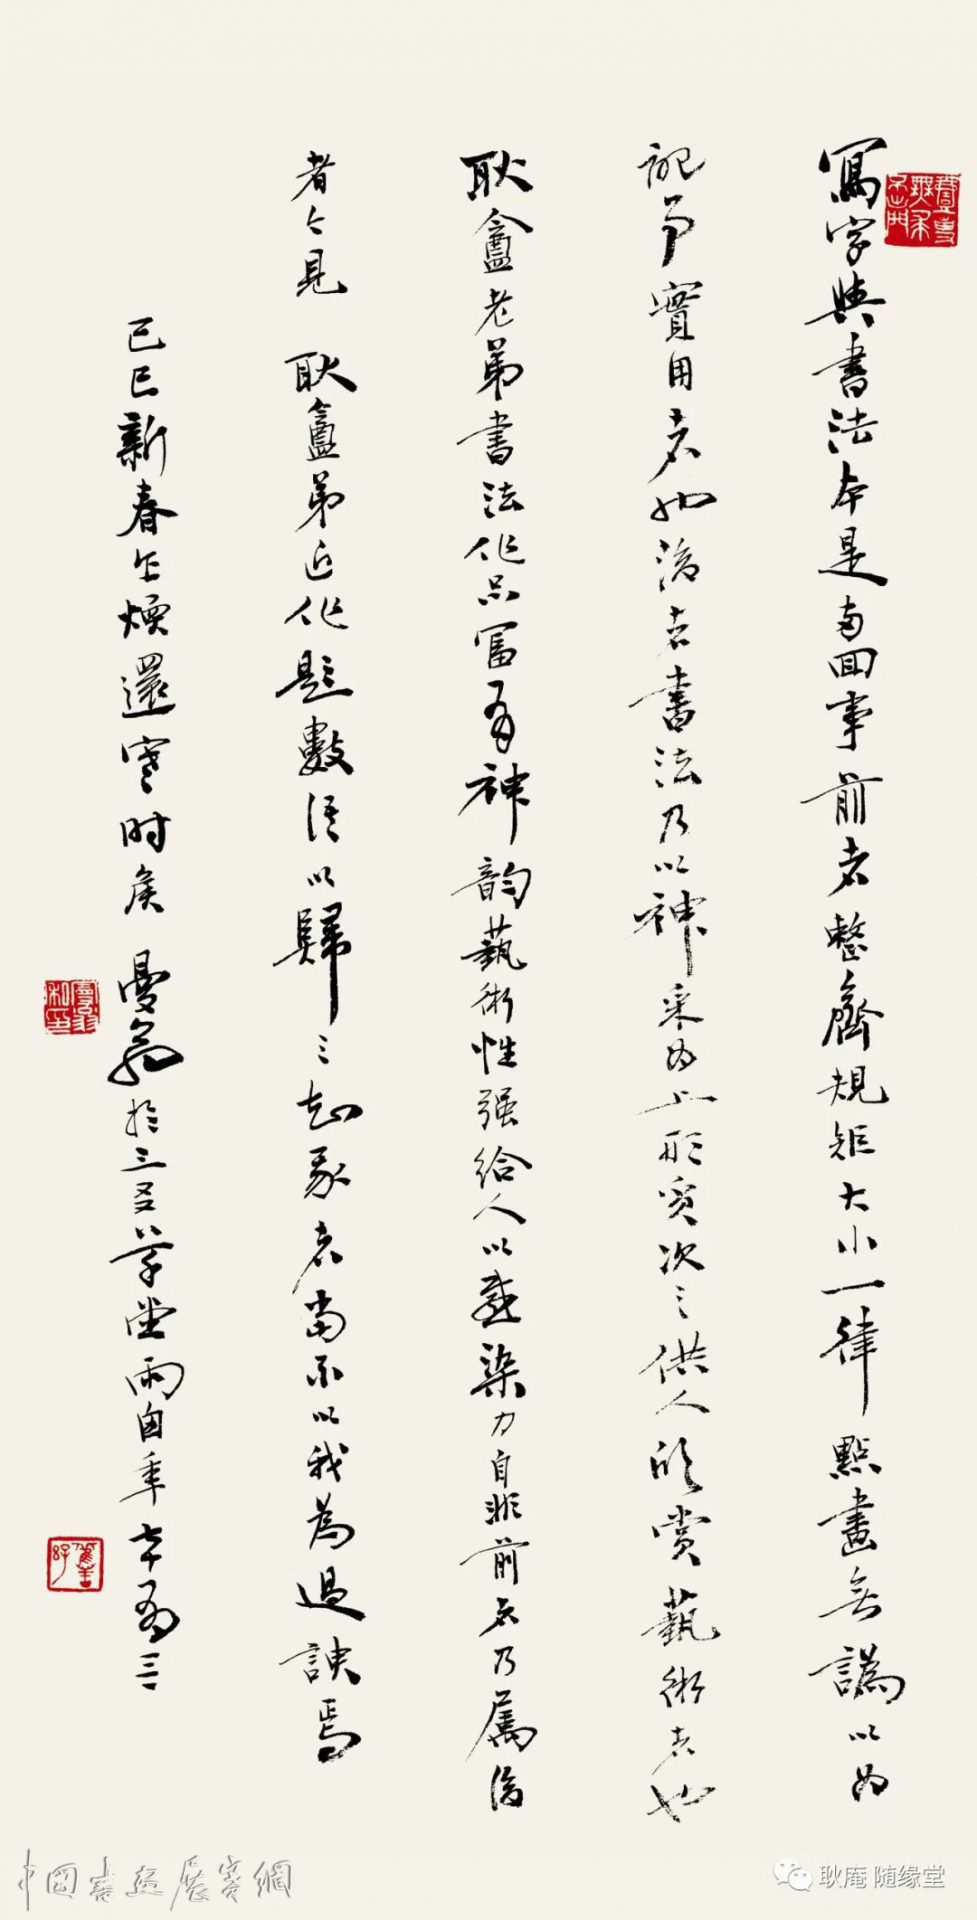 寫字與書法本是兩回事前者整齊規矩大小一律點畫無譌以為
記事實用者也後者書法乃以神采為上形質次之供人欣賞藝術者也
耿盦老弟書法作品富有神韵藝術性强給人以感染力自非前者乃属後
者今見 耿盦弟近作題數語以歸之知我者當不以我為過諛焉
己巳新春乍煖還寒时矦於三草堂雨自年七十有三
中國書画展賽網
耿庵 随缘堂